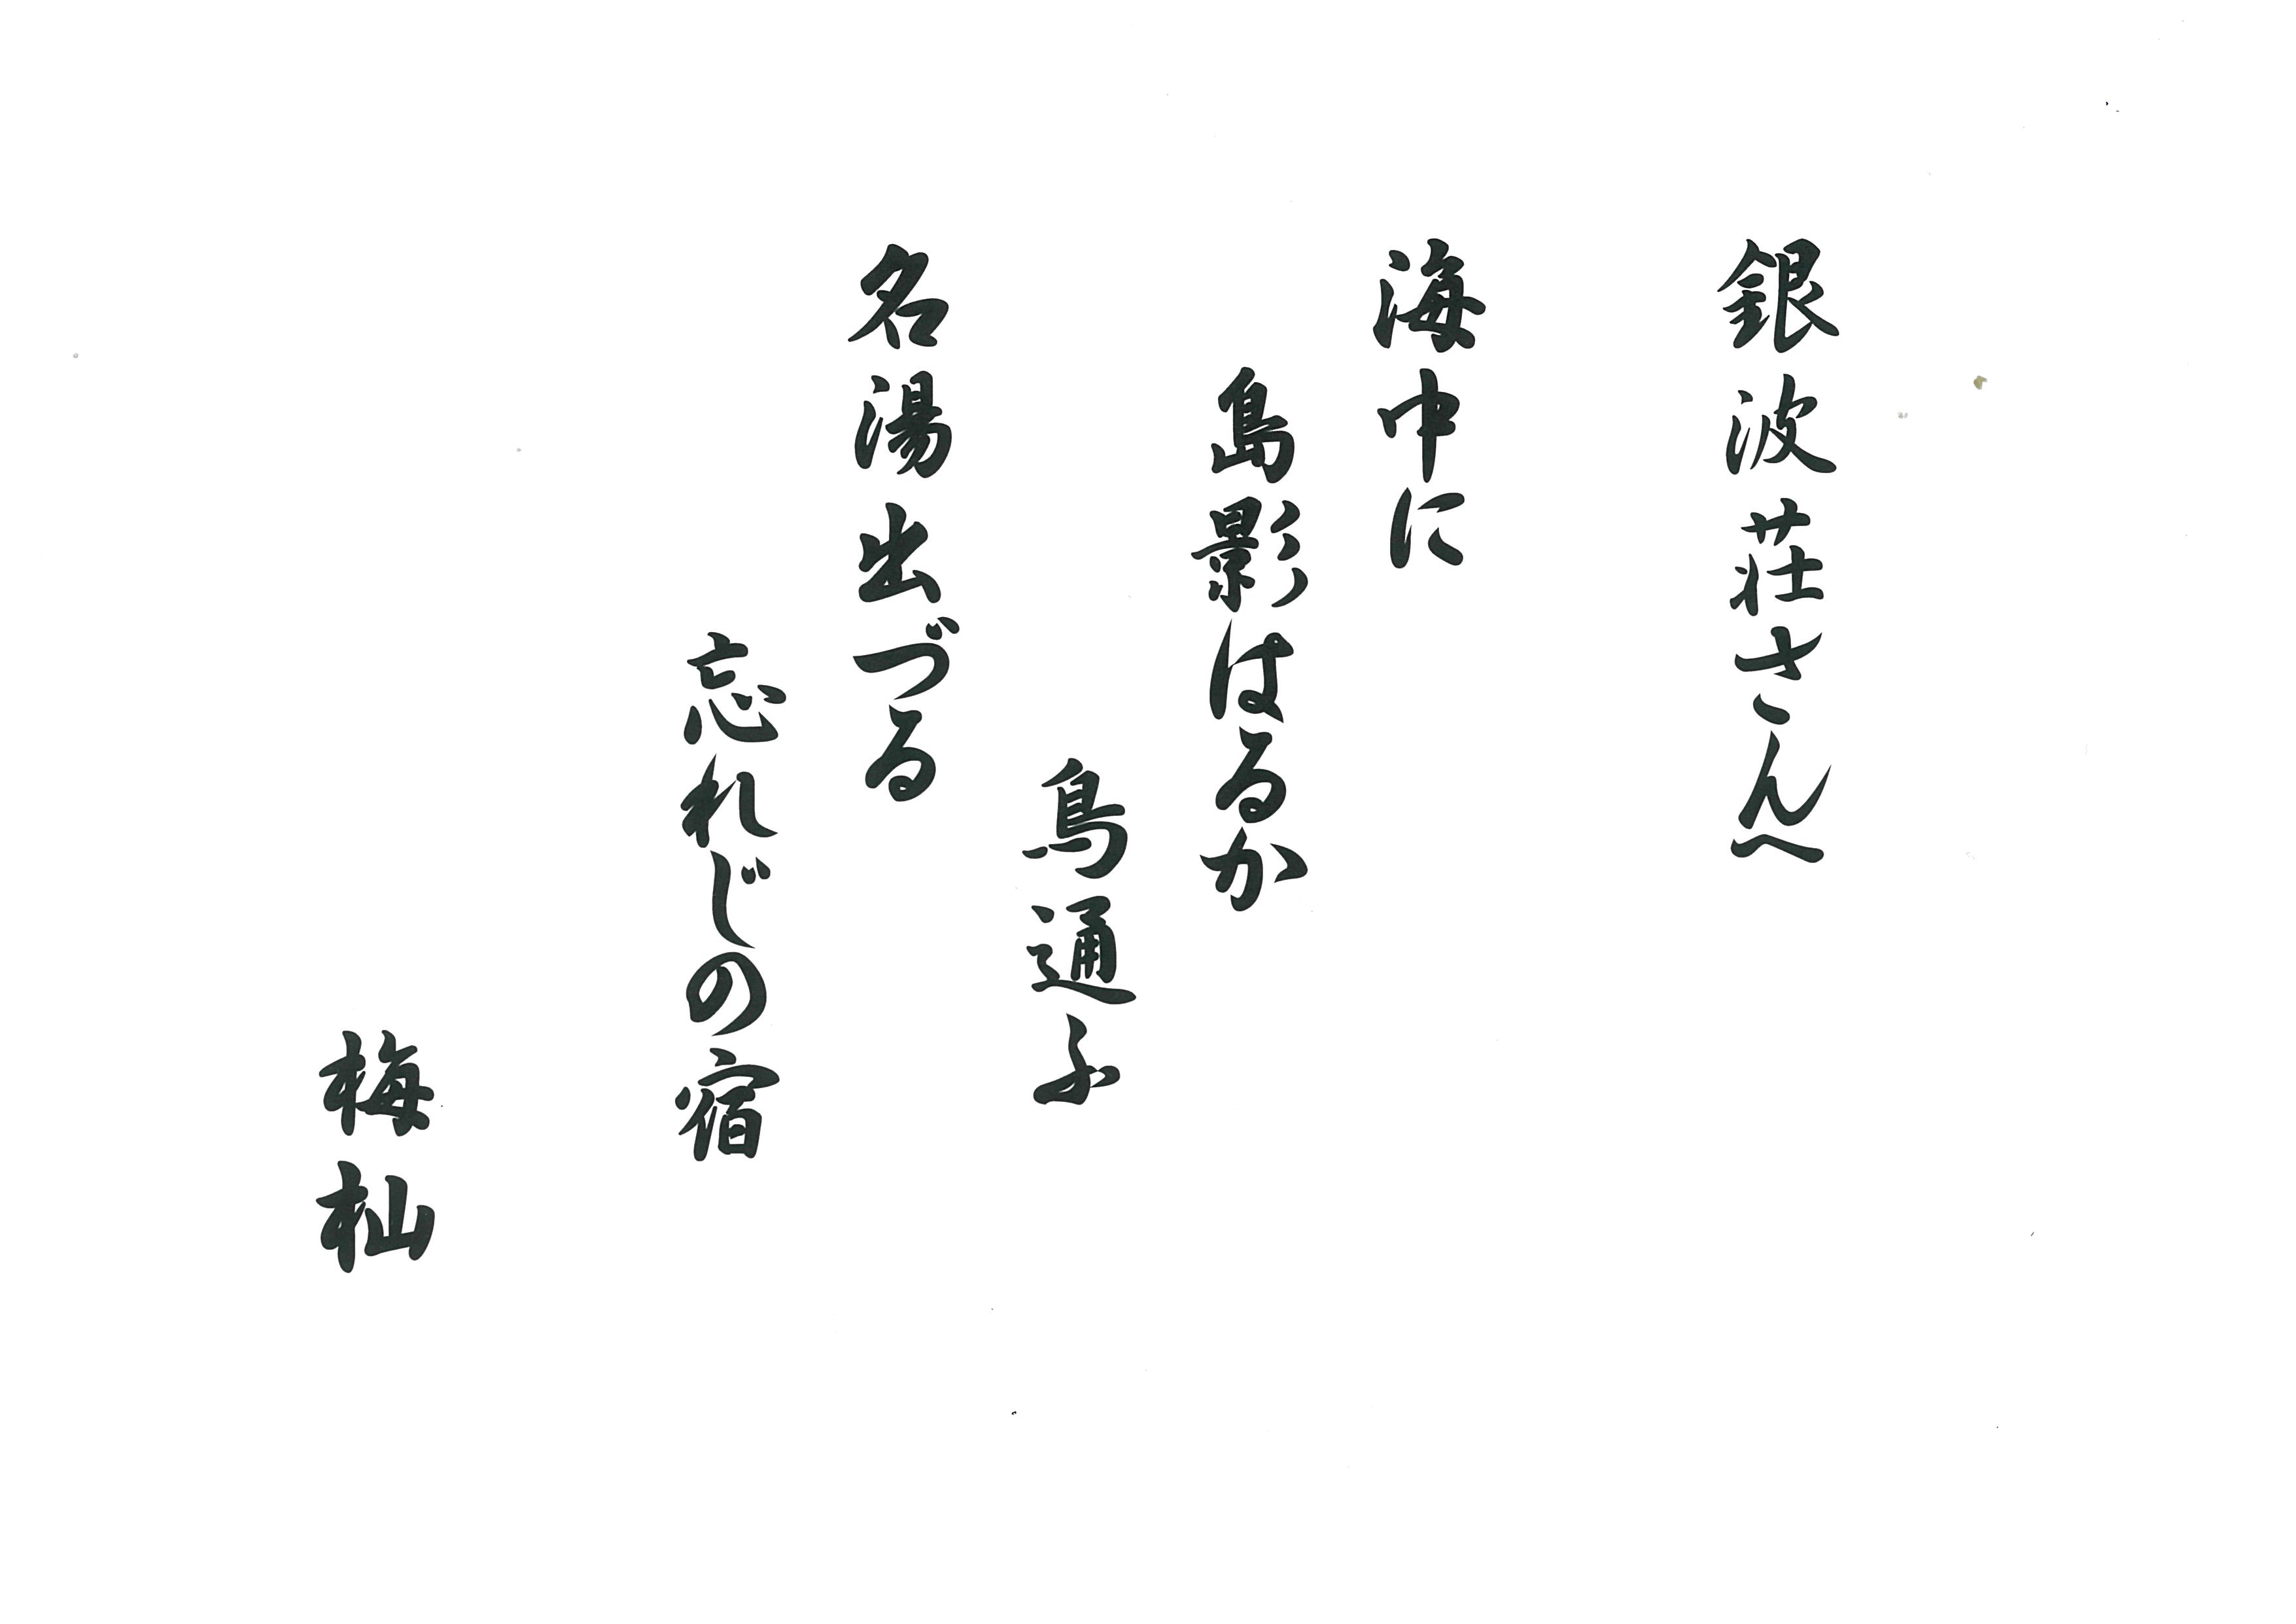 銀波荘さんへ
海中に
島影はるか
鳥通ふ
名湯出づる
忘れじの宿
梅杣